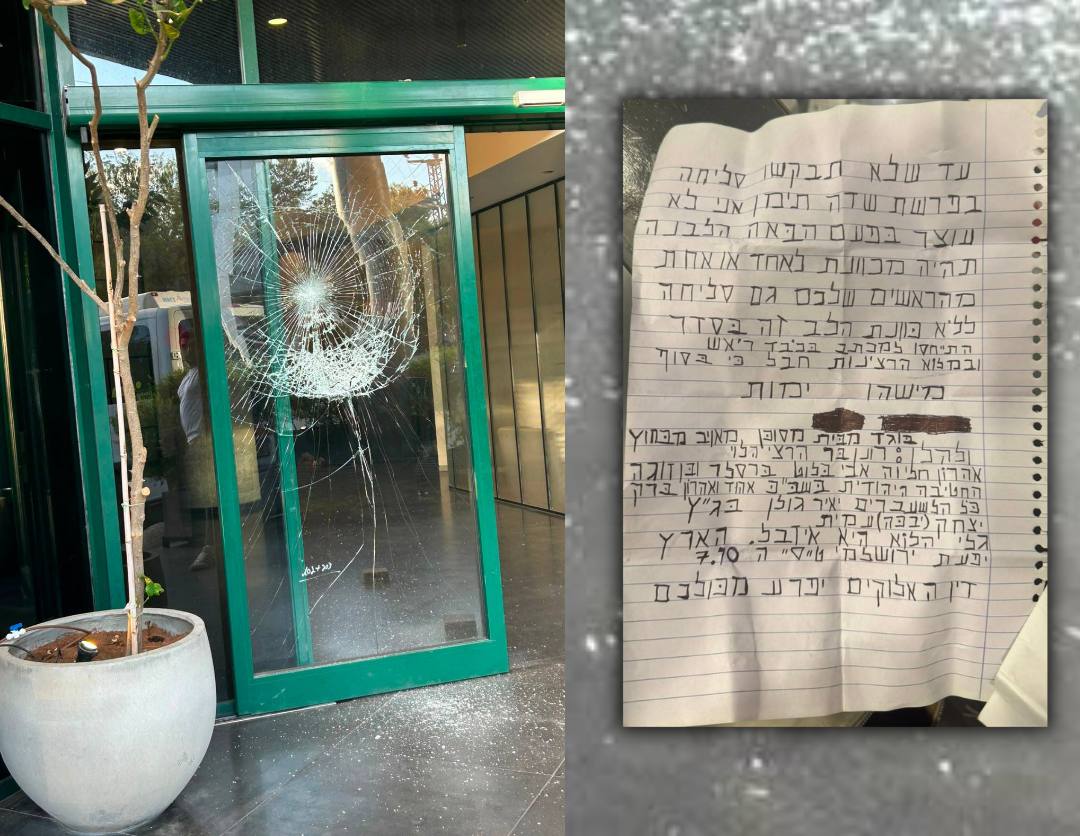 עד שלא תבקשו סליחה
בפרשת שדה תימן אני לא
עוצר בפעם הבאה הלבנה
תהיה מכוונת לאחד או אחת
מהראשים שלכם גם סליחה
ללא כוונת הלב זה בסדר
התיחסו למכתב בכובד ראש
ובמלוא הרצינות חבל כי בסוף
מישהו ימות
בוגד מבית מסוכן מאויב מבחוץ
ולהלן: רונן בר הרצי הלוי
אהרון חליוה אלי
החטיבה היהודית בשב"כ אהוד אהרון ברק
כל הלשעברים יאיר גולן בג"ץ
יצחק עמית
גלי הארץ
יפעת ירושלמי 7.10
דין האלוקים יפרע מכולכם